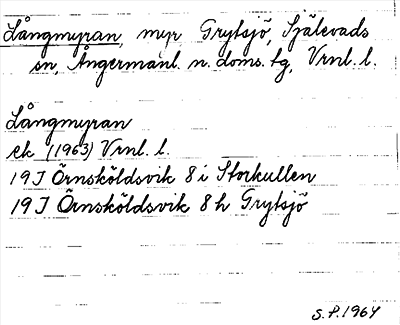 Långmyran, myr Grytsjö, Själevads
sn, Ångermanl. n. doms. tg, Vrnl. l.
Långmyran
ek (1963) Vrnl. l.
19 J Örnsköldsvik 8 i Storkullen
19 J Örnsköldsvik 8 h Grytsjö
S.P. 1964